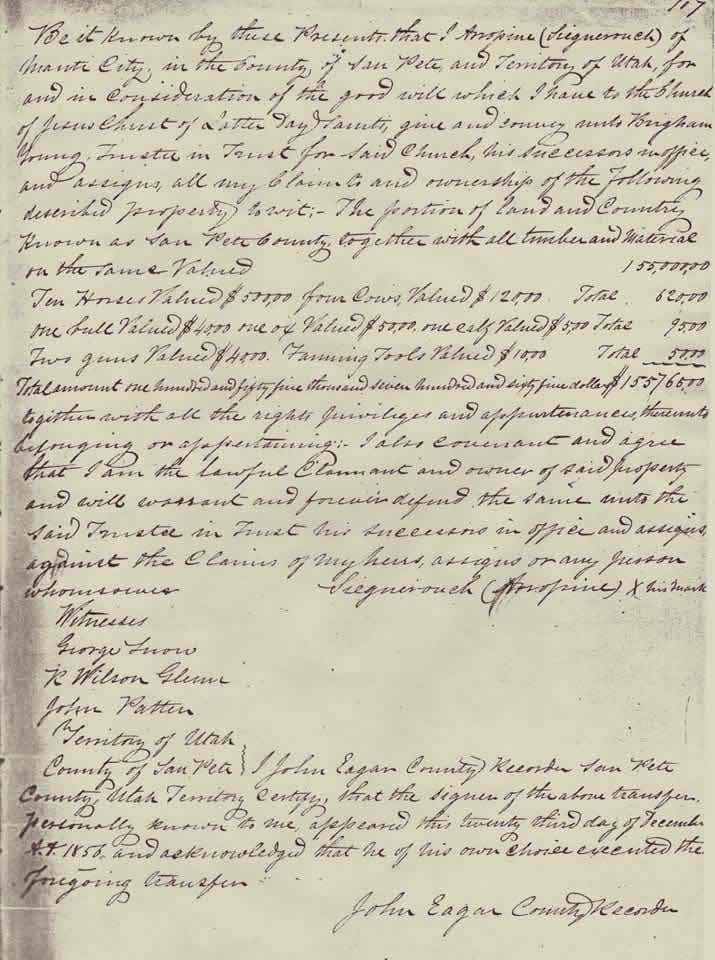 107
Be it Known by these Presents. that I Arropine (Siegnerouch) of
Manti City, in the County of San Pete, and Territory of Utah, for
and in Consideration of the good will which I have to the Church
of Jesus Christ of Latter Day Saints, give and convey unto Brigham
Young, Trustee in Trust for said Church, his successors in office,
and assigns, all my Claim to and ownership of the following
described property, to wit;- The portion of land and Country
Known as San Pete County, together with all timber and Material
on the same Valued 155,000,00
Ten Horses Valued $500,00 four Cows, Valued $120,00. Total 620,00
one bull Valued $40,00 one ox Valued $50,00. one calf Valued $5,00 Total 95,00
Two guns Valued $40,00. Farming Tools Valued $10,00 Total 50,00
Total amount one hundred and fifty five thousand seven hundred and sixty five dollars $155765,00
together with all the rights, privileges and appurtenances, thereunto
belonging or appertaining:- I also covenant and agree
that I am the lawful Claimant and owner of said property
and will warrant and forever defend the same unto the
said Trustee in Trust his successors in office and assigns,
against the Claims of my heirs, assigns or any person
whomsoever Siegnerouch (Arropine) X his mark
Witnesses
George Snow
R Wilson Glenn
John Patten
Territory of Utah
County of San Pete } I John Eagar County Recorder San Pete
County, Utah Territory certify, that the signer of the above transfer,
personally known to me, appeared this twenty third day of December
A.D. 1856, and acknowledged that he of his own choice executed the
foregoing transfer
John Eagar County Recorder